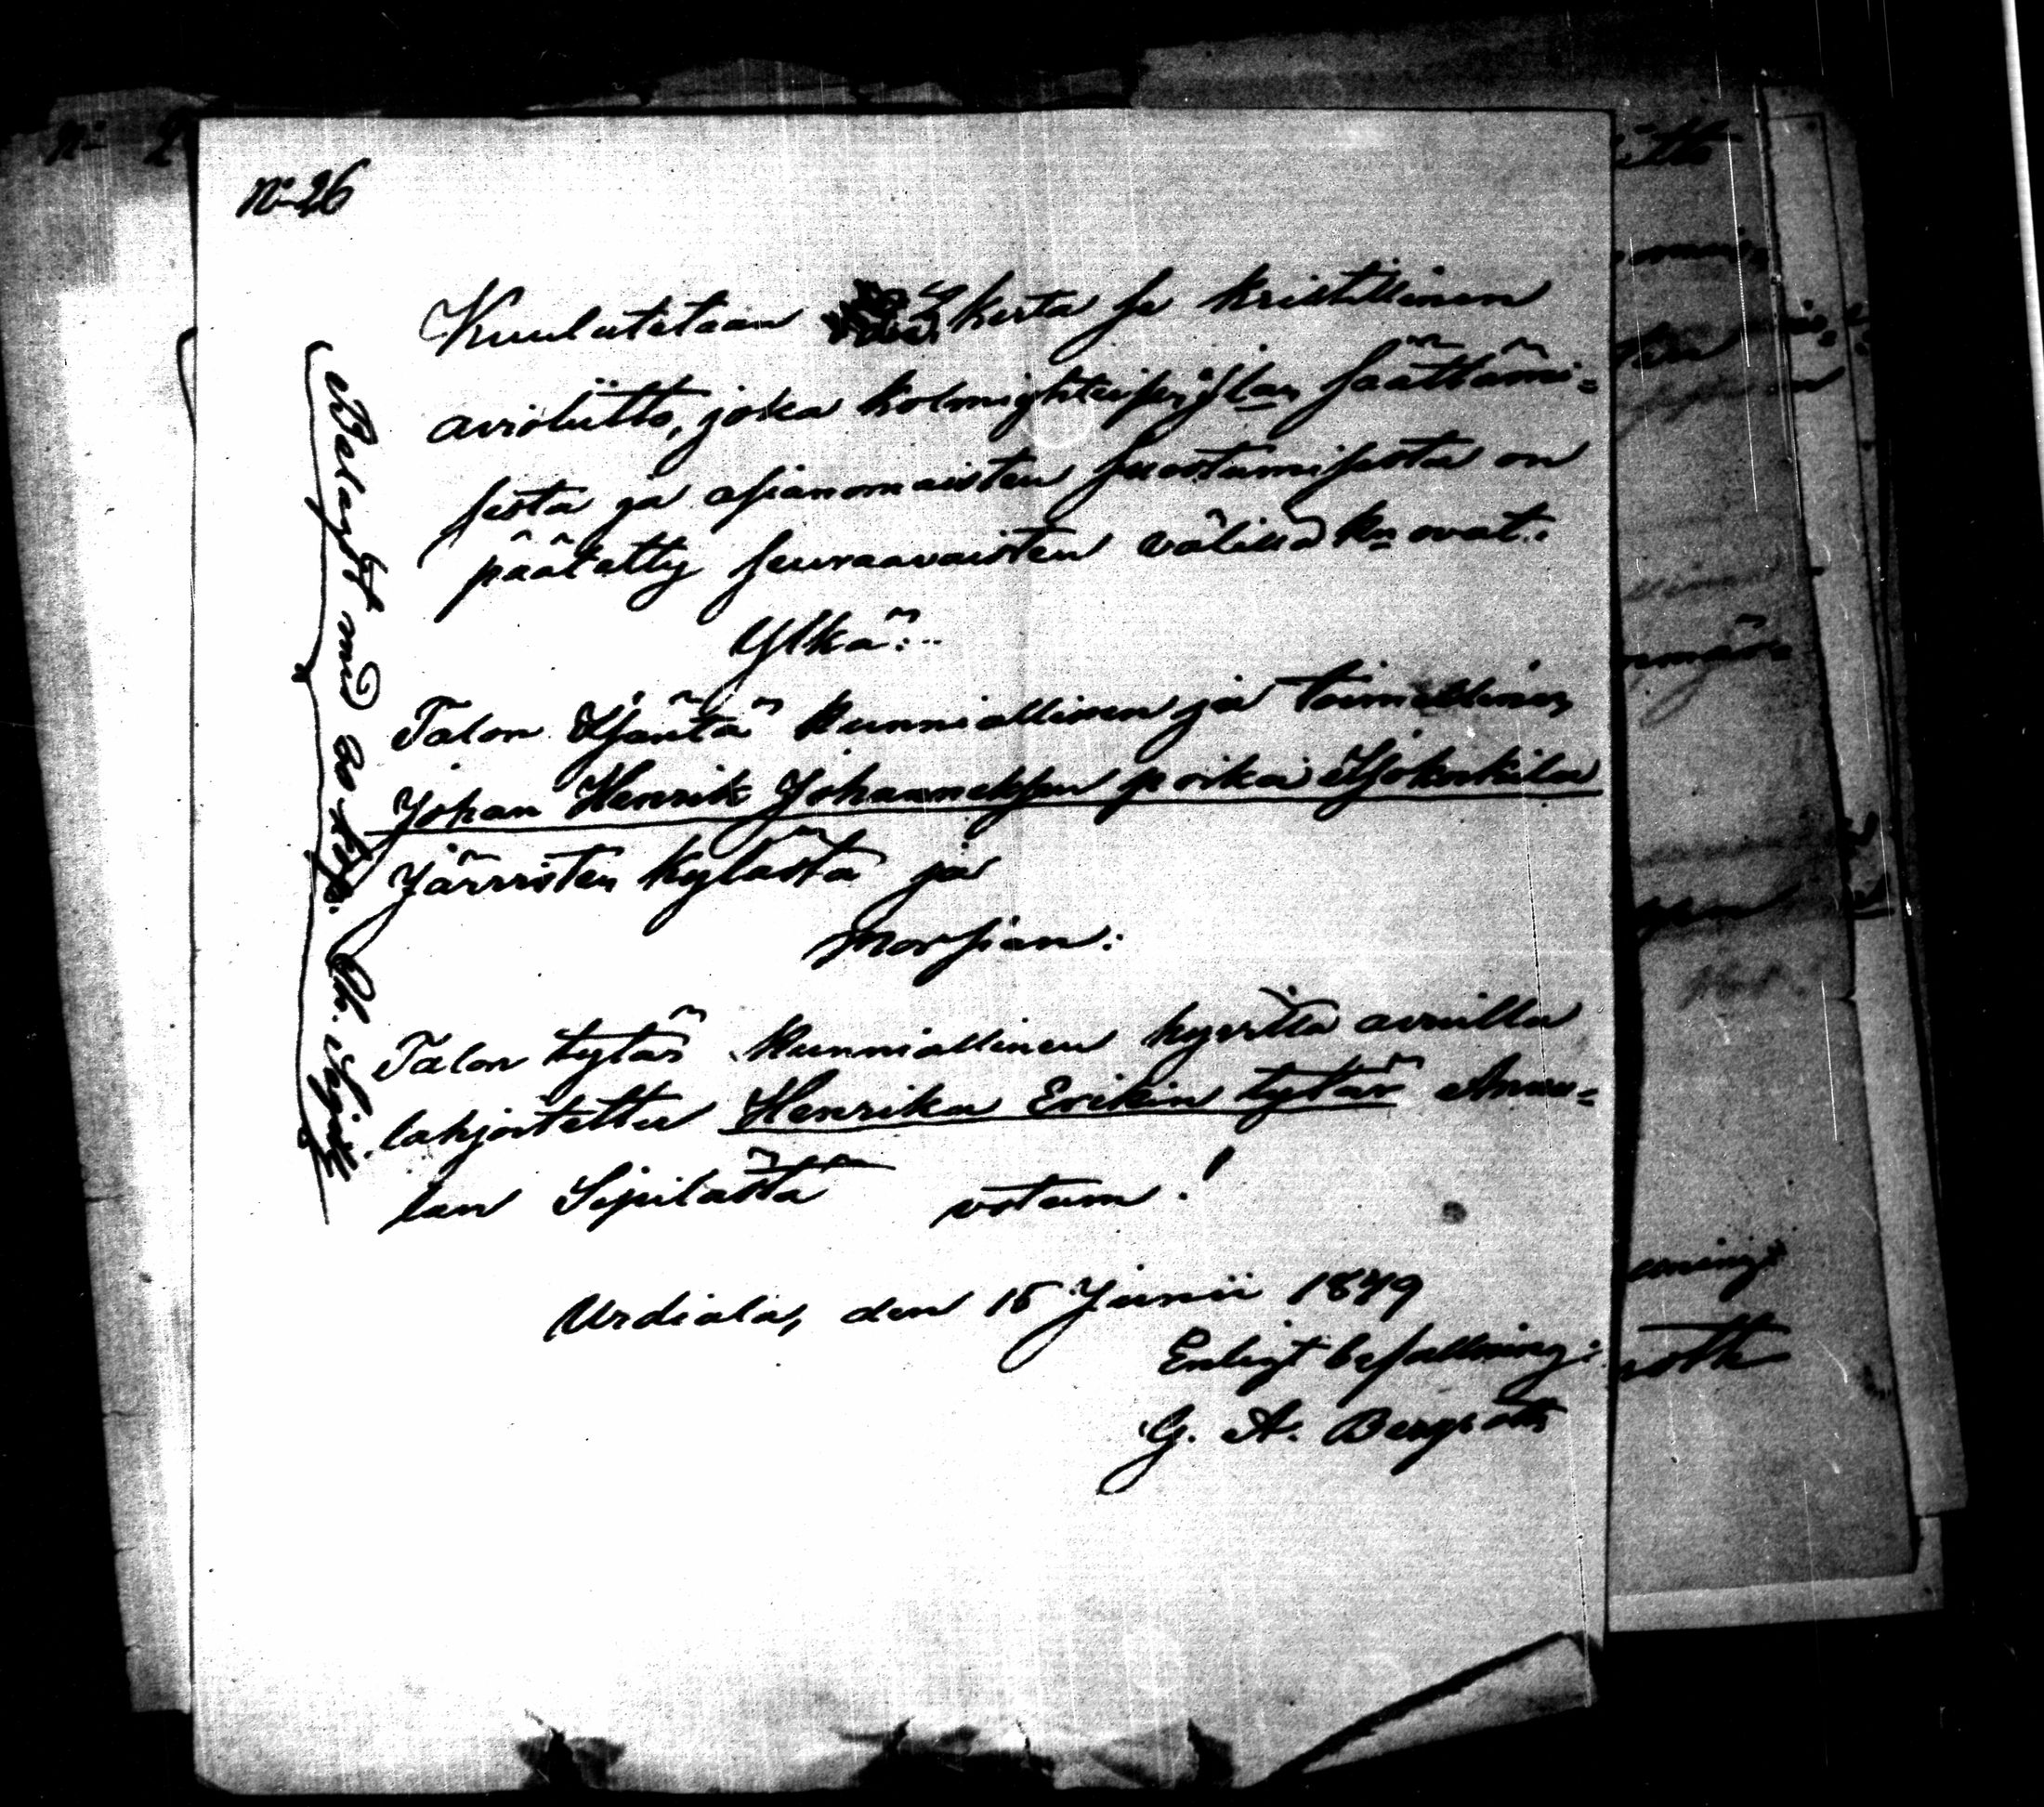 No 26
Kuulutetaan kerta se kristillinen
avioliitto, joka kolmiyhteisen jlan säättämi=
sestä ja asianomaisten suostumisesta on
päätetty seuraavaisten välillä ku ovat:
Ylkä:
Talon Isäntä kunniallinen ja toimellinen
Johan Henrik Johanneksen poika Isokukila
Järvisten kylästä ja
Morsian:
Talon tytär kunniallinen hyvillä avuilla
lahjoitettu Henrika Erikin tytär Annu=
lan Sipilästä votum!
Urdiala, den 15 Junii 1879
Enligt befallning:
G. A. Bergroth
Belagdt med 20 kop.